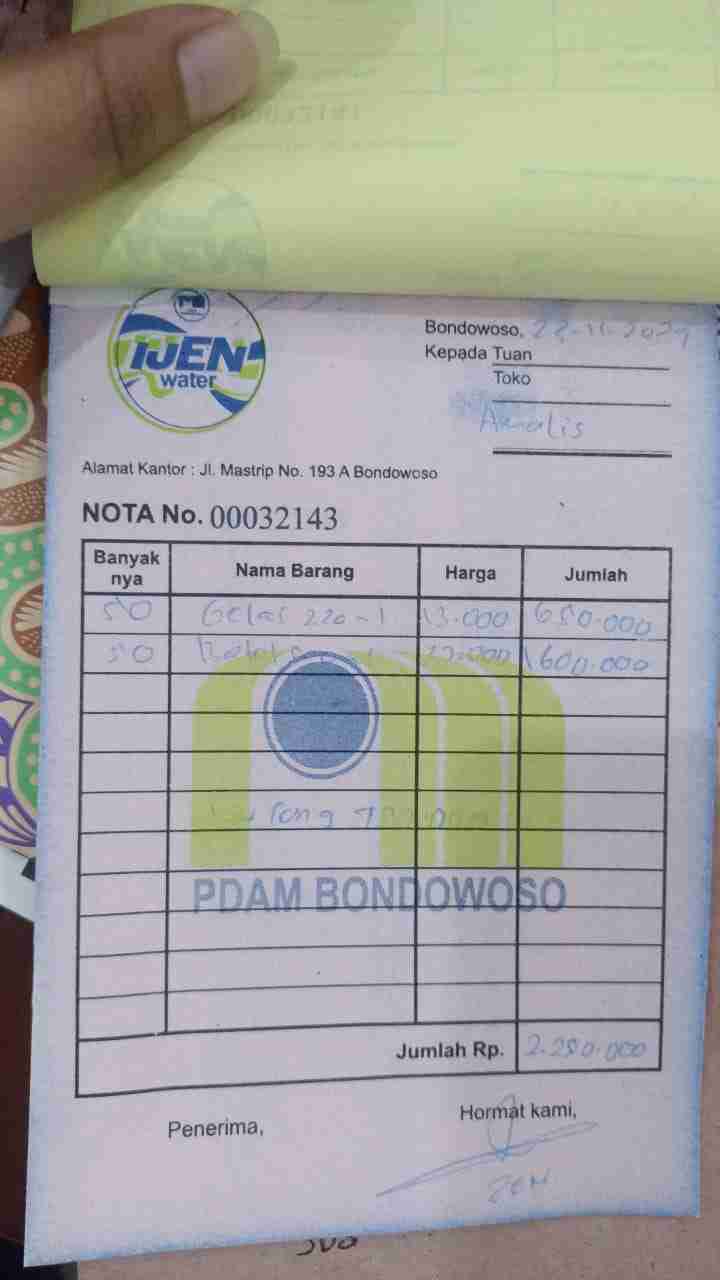 IJEN
water
Bondowoso, 22-11-2024
Kepada Tuan
Toko
Amalis
Alamat Kantor : Jl. Mastrip No. 193 A Bondowoso
NOTA No. 00032143
Banyak nya Nama Barang Harga Jumlah
50 Gelas 220 13.000 650.000
50 1600.000
PDAM BONDOWOSO
Jumlah Rp. 2.250.000
Penerima, Hormat kami,